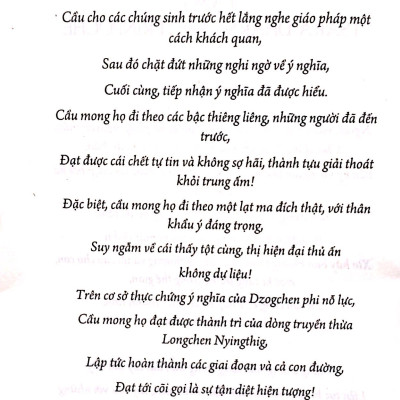 Cầu cho các chúng sinh trước hết lắng nghe giáo pháp một
cách khách quan,
Sau đó chặt đứt những nghi ngờ về ý nghĩa,
Cuối cùng, tiếp nhận ý nghĩa đã được hiểu.
Cầu mong họ đi theo các bậc thiêng liêng, những người đã đến
trước,
Đạt được cái chết tự tin và không sợ hãi, thành tựu giải thoát
khỏi trung ấm!
Đặc biệt, cầu mong họ đi theo một lạt ma đích thật, với thân
khẩu ý đáng trọng,
Suy ngẫm về cái thấy tột cùng, thị hiện đại thủ ấn
không dự liệu!
Trên cơ sở thực chứng ý nghĩa của Dzogchen phi nỗ lực,
Cầu mong họ đạt được thành trì của dòng truyền thừa
Longchen Nyingthig,
Lập tức hoàn thành các giai đoạn và cả con đường,
Đạt tới cõi gọi là sự tận diệt hiện tượng!